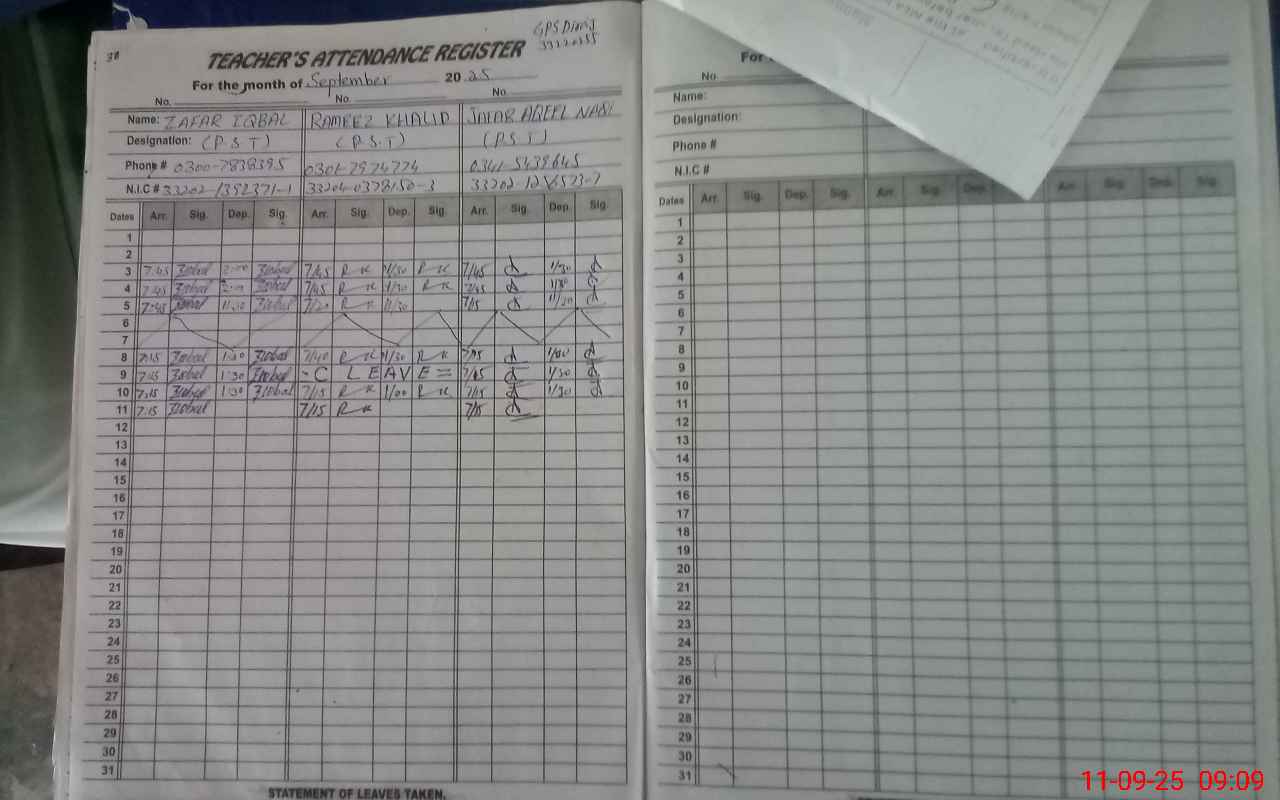 38
GPS
TEACHER'S ATTENDANCE REGISTER
For the month of September 2025
No. No. No.
Name: ZAFAR IQBAL RAMEEZ KHALID JAFAR AQEEL NABI
Designation: (P.S.T) (P.S.T) (P.S.T)
Phone # 0300-7838395 0301-7974774 0341-5439645
N.I.C # 33202-1392371-1 33204-0378150-3
Dates Arr. Sig. Dep. Sig. Arr. Sig. Dep. Sig. Arr. Sig. Dep. Sig.
1
2
3 7:45 2:00 7/45 RK 1/30 RK 7/45 1/30
4 7:45 2:00 7/45 RK 1/30 RK 7/45 1/30
5 7:45 7/20 RK 11/30 7/15 11/20
6
7
8 7:15 1:30 7/40 RK 1/30 RK 7/15 1/30
9 7:45 1:30 C LEAVE = 7/45 1/30
10 7:15 1:30 7/15 RK 1/00 RK 7/15 1/30
11 7:15 7/15 RK 7/15
12
13
14
15
16
17
18
19
20
21
22
23
24
25
26
27
28
29
30
31
STATEMENT OF LEAVES TAKEN.
For
No
Name:
Designation:
Phone #
N.I.C #
Dates Arr. Sig. Dep. Sig. Arr. Sig. Dep. Sig. Arr. Sig. Dep. Sig.
1
2
3
4
5
6
7
8
9
10
11
12
13
14
15
16
17
18
19
20
21
22
23
24
25
26
27
28
29
30
31
11-09-25 09:09